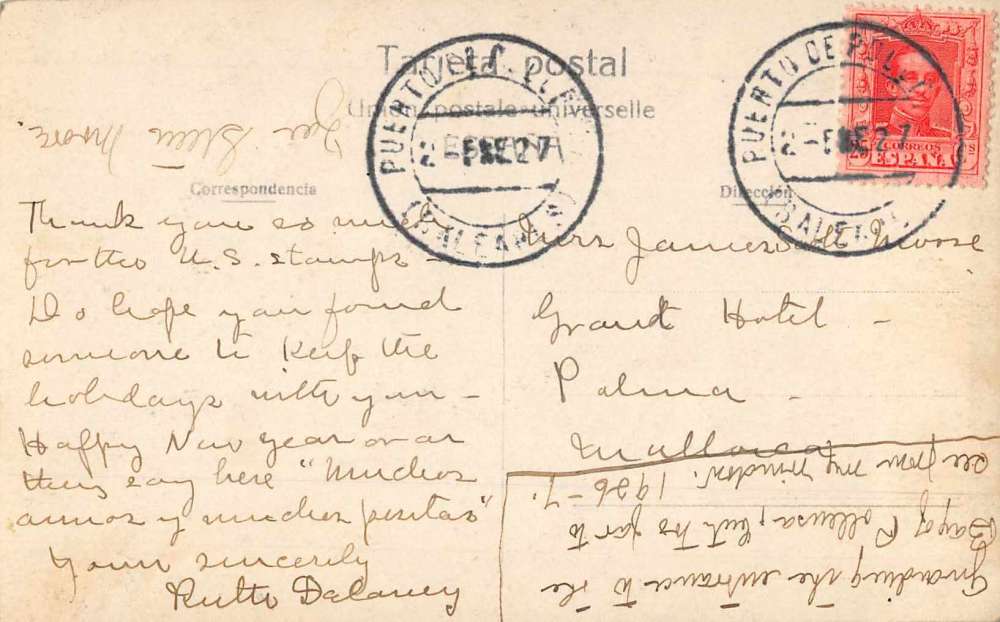 Tarjeta postal
Unión postale universelle
ESPAÑA
PUERTO DE POLLENSA
-5 ENE 27
(BALEARES)
PUERTO DE POLLENSA
-5 ENE 27
(BALEARES)
25 CORREOS
ESPAÑA
Moore
Correspondencia
Dirección
Thank you so much
for the U.S. stamps –
Do hope you found
someone to keep the
holidays with you –
Happy New Year or as
they say here "Muchos
annos y muchos pesetas"
Yours sincerely
Ruth Delaney
Mrs James Moore
Grand Hotel –
Palma –
Mallorca
Guarding the entrance to the
Bay of Pollensa, but too far to
see from my window. 1926–7.